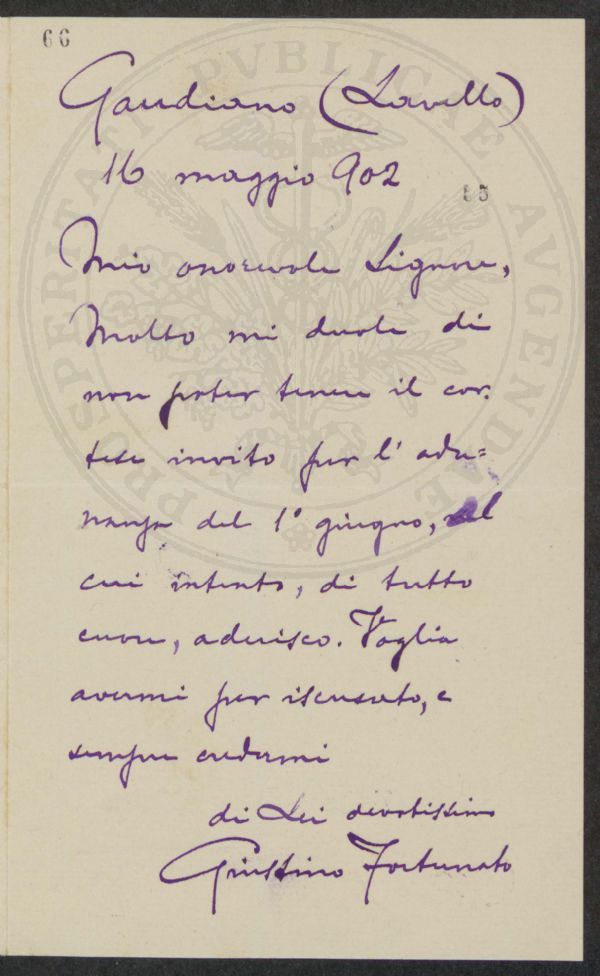 66
Gaudiano (Lavello)
16 maggio 902
65
Mio onorevole Signore,
Molto mi duole di
non poter tenere il cor-
tese invito per l'adu=
nanza del 1º giugno, al
cui intento, di tutto
cuore, aderisco. Voglia
avermi per iscusato, e
sempre credermi
di Lei devotissimo
Giustino Fortunato
PROSPERITATI PVBLICAE AVGENDAE